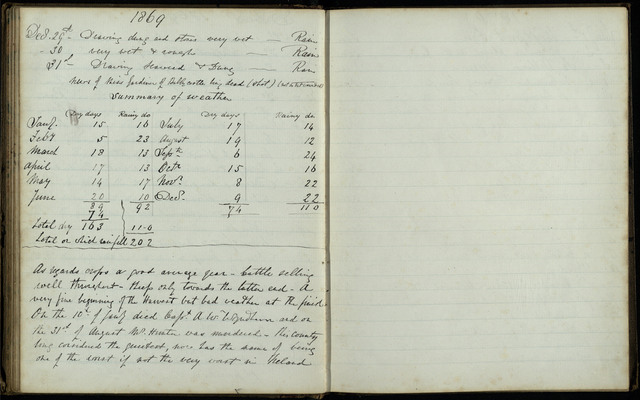 1869
Decr. 29th Drawing dung and stones very wet — Rain
- 30 very wet & rough — Rain
31st Drawing Seaweed & Dung — Rain
news of Miss Gardiner of being dead (shot)
Summary of weather
Dry days Rainy do Dry days Rainy do
Jany. 15 16 July 17 14
Feby. 5 23 August 19 12
March 18 13 Septr. 6 24
April 17 13 Octr. 15 16
May 14 17 Novr. 8 22
June 20 10 Decr. 9 22
89 92 74 110
74
Total dry 163 110
Total on which rain fell 202
As regards crops a good average year - Cattle selling
well throughout - Sheep only towards the latter end - A
very fine beginning of the Harvest but bad weather at the finish
On the 10th of Jany died Capt. A W Wyndham and on
the 31st of August Mr. Hunter was murdered - this County
long considered the quietest, now has the name of being
one of the worst if not the very worst in Ireland